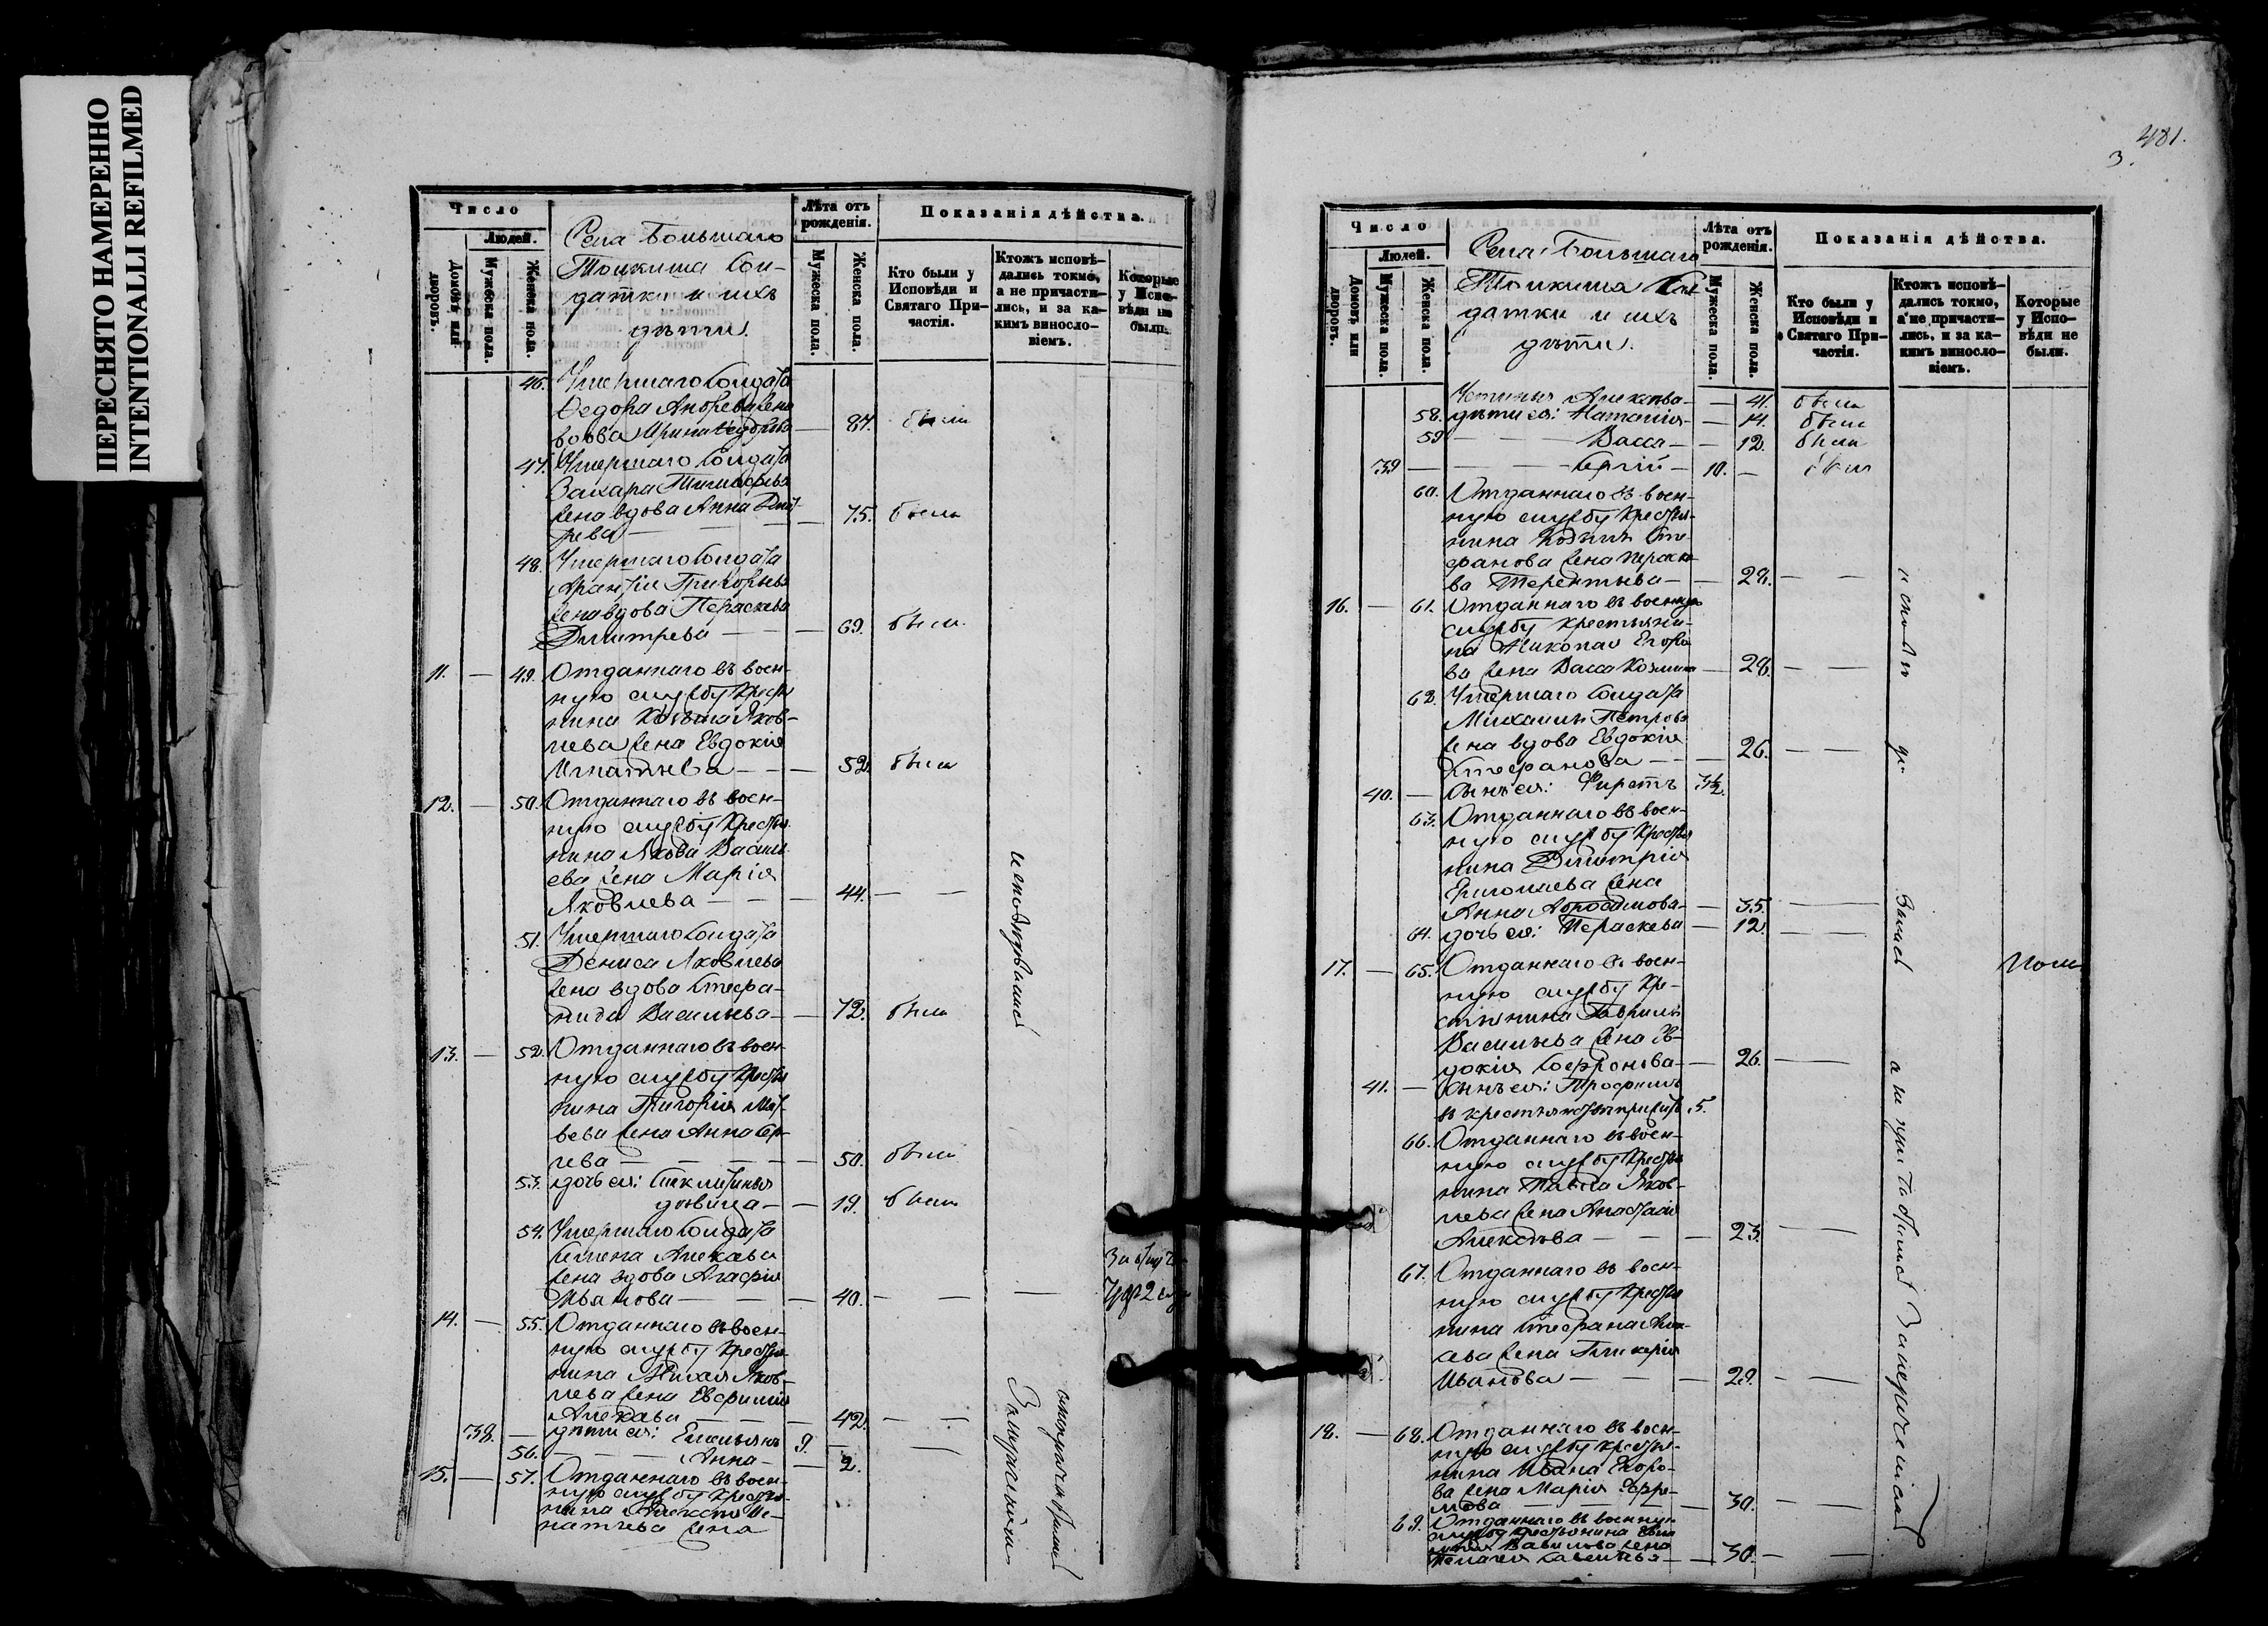 ПЕРЕСНЯТО НАМЕРЕННО
INTENTIONALLI REFILMED
Число
Людей.
Домовъ или дворовъ.
Мужеска пола.
Женска пола.
Села Большаго
Толкиша Сол-
датки и ихъ
дѣти.
Лѣта отъ рожденія.
Мужеска пола.
Женска пола.
Показанія дѣйства.
Кто были у Исповѣди и Святаго При-частія.
Ктожъ исповѣ-дались токмо, а не причасти-лись, и за ка-кимъ винсло-віемъ.
Которые у Испо-вѣди не были.
46. Умершаго Солдата
Федора Андреева жена
вдова Ирина Федорова — 87. была
47. Умершаго Солдата
Захара Тимофеева
жена вдова Анна
— 75. была
48. Умершаго Солдата
Григорьева
жена вдова Параскева
Димитрева — — 69. была
11. — 49. Отданнаго въ воен-
ную службу крестья
нина Козьмы Яков-
лева жена Евдокія
Игнатьева — — 52. была
12. — 50. Отданнаго въ воен-
ную службу крестья
нина Якова Василь
ева жена Марія
Яковлева — — 44. — —
51. Умершаго Солдата
Дениса Яковлева
жена вдова Стефа-
нида Васильева — 72. была
13. — 52. Отданнаго въ воен-
ную службу крестья
нина Григорія Мат
веева жена Анна Сер
— — — 50. была
53. дочь ея:
дѣвица — — 19. была
54. Умершаго Солдата
Семена Алексѣева
жена вдова Агафія
Иванова — — 40. — — —
14. — 55. Отданнаго въ воен-
ную службу крестья
нина Михаила Яков-
лева жена Евфимія
Алексѣева — — 42. — —
38. — дѣти ея: Емельянъ 9. —
56. — — Анна — — 2. —
15. — 57. Отданнаго въ воен-
ную службу крестья-
нина Алексѣя Иг-
натьева жена
481.
3.
Число
Людей.
Домовъ или дворовъ.
Мужеска пола.
Женска пола.
Села Большаго
Толкиша Сол
датки и ихъ
дѣти.
Лѣта отъ рожденія.
Мужеска пола.
Женска пола.
Показанія дѣйства.
Кто были у Исповѣди и Святаго При-частія.
Ктожъ исповѣ-дались токмо, а не причасти-лись, и за ка-кимъ винсло-віемъ.
Которые у Испо-вѣди не были.
Алексѣева — — 41. была
58. дѣти ея: Наталія — — 14. была
59 — — Васса — — 12. была
39 — — — Сергій — 10. — былъ
60. Отданнаго въ воен-
ную службу крестья-
нина Сте
фанова жена Параске
ва Терентьева — — 28. — —
16. — 61. Отданнаго въ военную
службу крестьяни-
на Николая Егоро
ва жена Васса Козмина — 28. — —
62. Умершаго Солдата
Михаила Петрова
жена вдова Евдокія
Стефанова — — 26. — —
40. — Сынъ ея: 3½.
63. Отданнаго въ воен-
ную службу крестья
нина Димитрія
Ермолаева жена
Анна — 35. —
64. дочь ея: Параскева — 12. — —
17. — 65. Отданнаго въ воен-
ную службу кре-
стьянина Гавріила
Васильева жена Ев-
докія Софронова — 26. —
41. — Сынъ ея: Трофимъ
5.
66. Отданнаго въ воен-
ную службу крестья
нина Павла Яков-
лева жена Анастасія
Алексѣева — — 23. — —
67. Отданнаго въ воен-
ную службу крестья
нина Стефана
жена Гликерія
Иванова — — 29. — —
18. — 68. Отданнаго въ воен-
ную службу крестья-
нина Ивана Егоро-
ва жена Марія Ефре-
мова — — 30. — —
69. Отданнаго въ военную
службу крестьянина
Вавилова жена
Пелагея Савельева — 30. — —